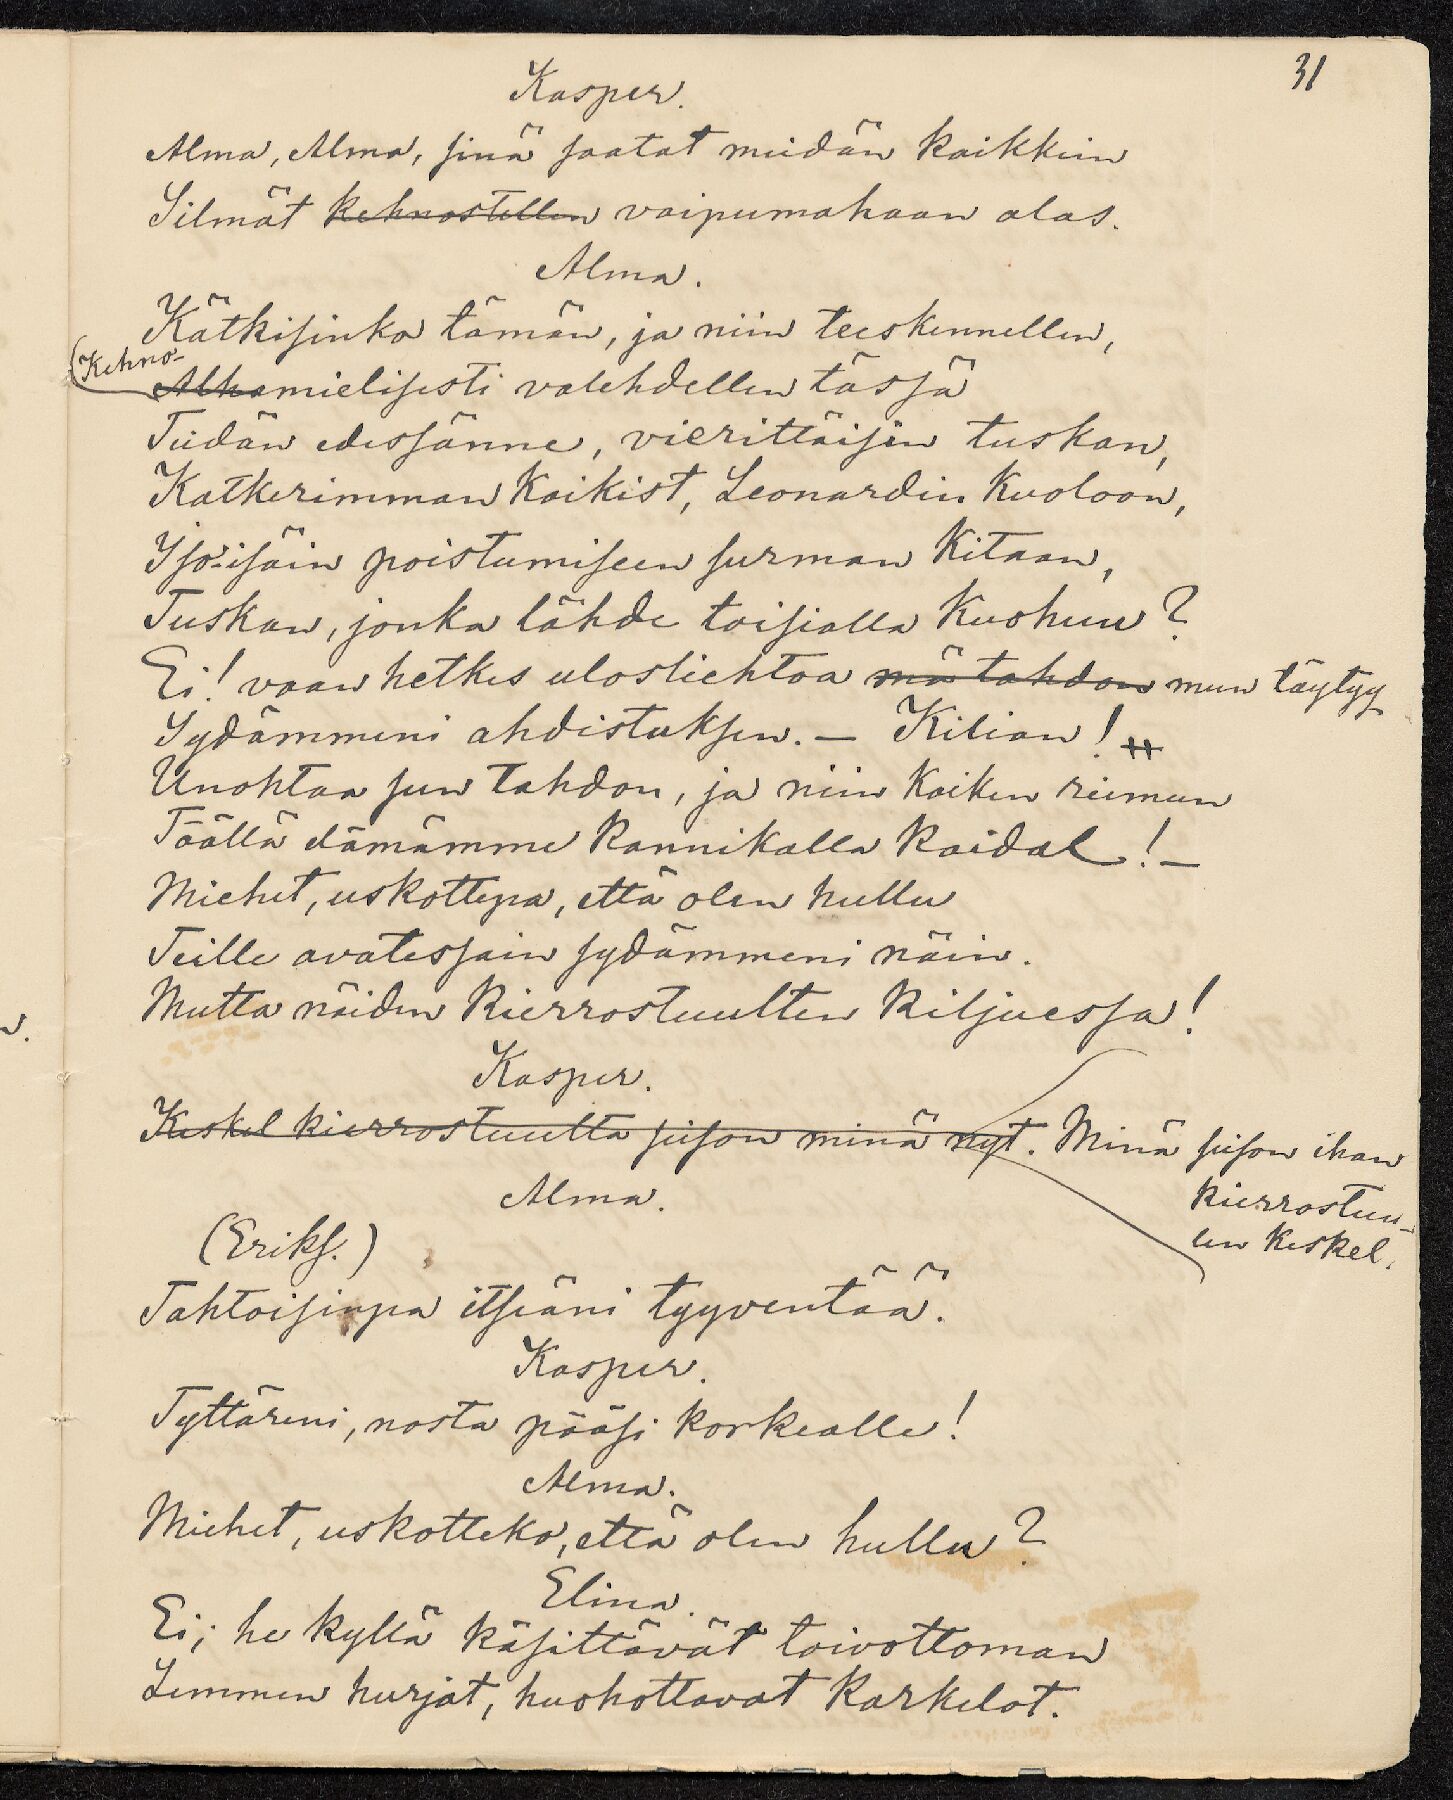 31
Kasper.
Alma, Alma, sinä saatat meidän kaikkein
Silmät kehnostellen vaipumahaan alas.
Alma.
Kätkisinkö tämän, ja niin teeskennellen,
(Kehno-
Alhamielisesti valehdellen tässä
Teidän edessänne, vierittäisin tuskan,
Katkerimman kaikist, Leonardin kuoloon,
Iso-isäin poistumiseen surman kitaan,
Tuskan, jonka lähde toisialla kuohuu?
Ei! vaan hetkes uloslichtoa mä tahdon mun täytyy
Sydämmeni ahdistuksen. — Kilian!
Unohtaa sun tahdon, ja niin kaiken riemun
Täällä elämämme kannikalla kaidal! —
Miehet, uskottepa, että olen hullu
Teille avatessain sydämmeni näin.
Mutta näiden kierrostuulten kiljuessa!
Kasper.
Keskel kierrostuulta seison minä nyt. Minä seison ihan
kierrostuu-
len keskel.
Alma.
(Eriks.)
Tahtoisinpa itseäni tyyventää.
Kasper.
Tyttäreni, nosta pääsi korkealle!
Alma.
Miehet, uskotteko, että olen hullu?
Elina.
Ei; he kyllä käsittävät toivottoman
Lemmen hurjat, huohottavat karkelot.